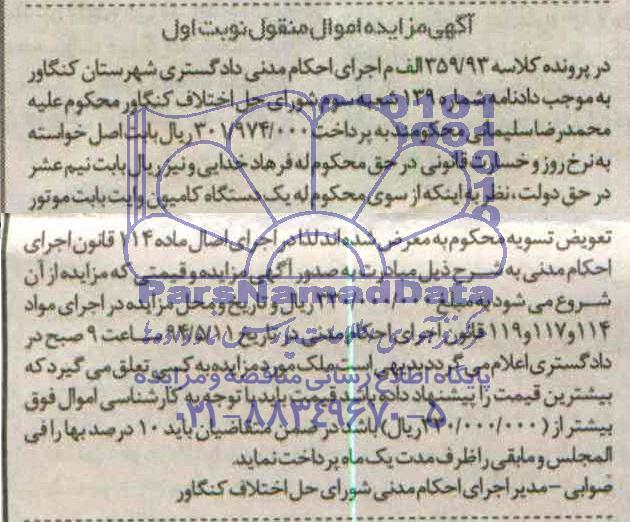 آگهی مزایده اموال منقول نوبت اول
در پرونده کلاسه ۳۵۹/۹۳ الف م اجرای احکام مدنی دادگستری شهرستان کنگاور
به موجب دادنامه شماره ۱۳۹ شعبه سوم شورای حل اختلاف کنگاور محکوم علیه
محمدرضا سلیمانی محکومند به پرداخت ۳۰۱/۹۷۴/۰۰۰ ریال بابت اصل خواسته
به نرخ روز و خسارت قانونی در حق محکوم له فرهاد خدایی و نیز ریال بابت نیم عشر
در حق دولت، نظر به اینکه از سوی محکوم له یک دستگاه کامیون وایت بابت موتور
تعویض تسویه محکوم به معرض شده اند لذا در اجرای اصال ماده ۱۱۴ قانون اجرای
احکام مدنی به شرح ذیل مبادرت به صدور آگهی مزایده و قیمتی که مزایده از آن
شروع می شود به مبلغ ۲۲۰/۰۰۰/۰۰۰ ریال و تاریخ و محل مزایده در اجرای مواد
۱۱۴ و ۱۱۷ و ۱۱۹ قانون اجرای احکام مدنی در تاریخ ۹۴/۵/۱۱ ساعت ۹ صبح در
دادگستری اعلام می گردد بدیهی است ملک مورد مزایده به کسی تعلق می گیرد که
بیشترین قیمت را پیشنهاد داده باشد قیمت باید با توجه به کارشناسی اموال فوق
بیشتر از (۲۲۰/۰۰۰/۰۰۰ ریال) باشد در ضمن متقاضیان باید ۱۰ درصد بها را فی
المجلس و مابقی را ظرف مدت یک ماه پرداخت نماید.
ضوابی - مدیر اجرای احکام مدنی شورای حل اختلاف کنگاور
ParsNamadData
پایگاه اطلاع رسانی مناقصه و مزایده
۰۲۱-۸۸۳۴۹۶۷۰-۵